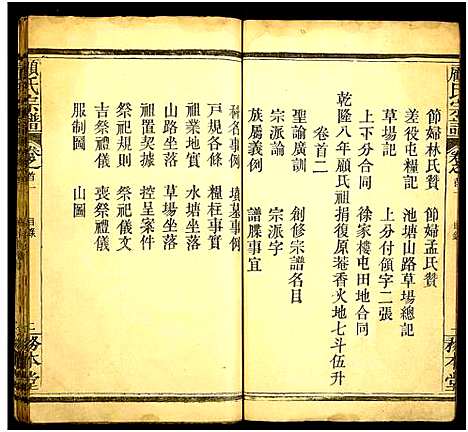 顧氏宗譜
節婦林氏贊 節婦孟氏贊
差役屯糧記 池塘山路草場總記
草場記 上分付領字二張
上下分合同 徐家樓屯田地合同
乾隆八年顧氏祖捐復原菴香火地七斗伍升
卷首二
聖諭廣訓 創修宗譜名目
宗派論 宗派字
族屬義例 譜牒事宜
科名事例 墳墓事例
戸規各條 糧枉事實
祖業地實 水塘坐落
山路坐落 草場坐落
祖置契據 控呈案件
祭祀規則 祭祀儀文
吉祭禮儀 喪祭禮儀
服制圖 山圖
顧氏宗譜 卷之首一 目錄 二 務本堂